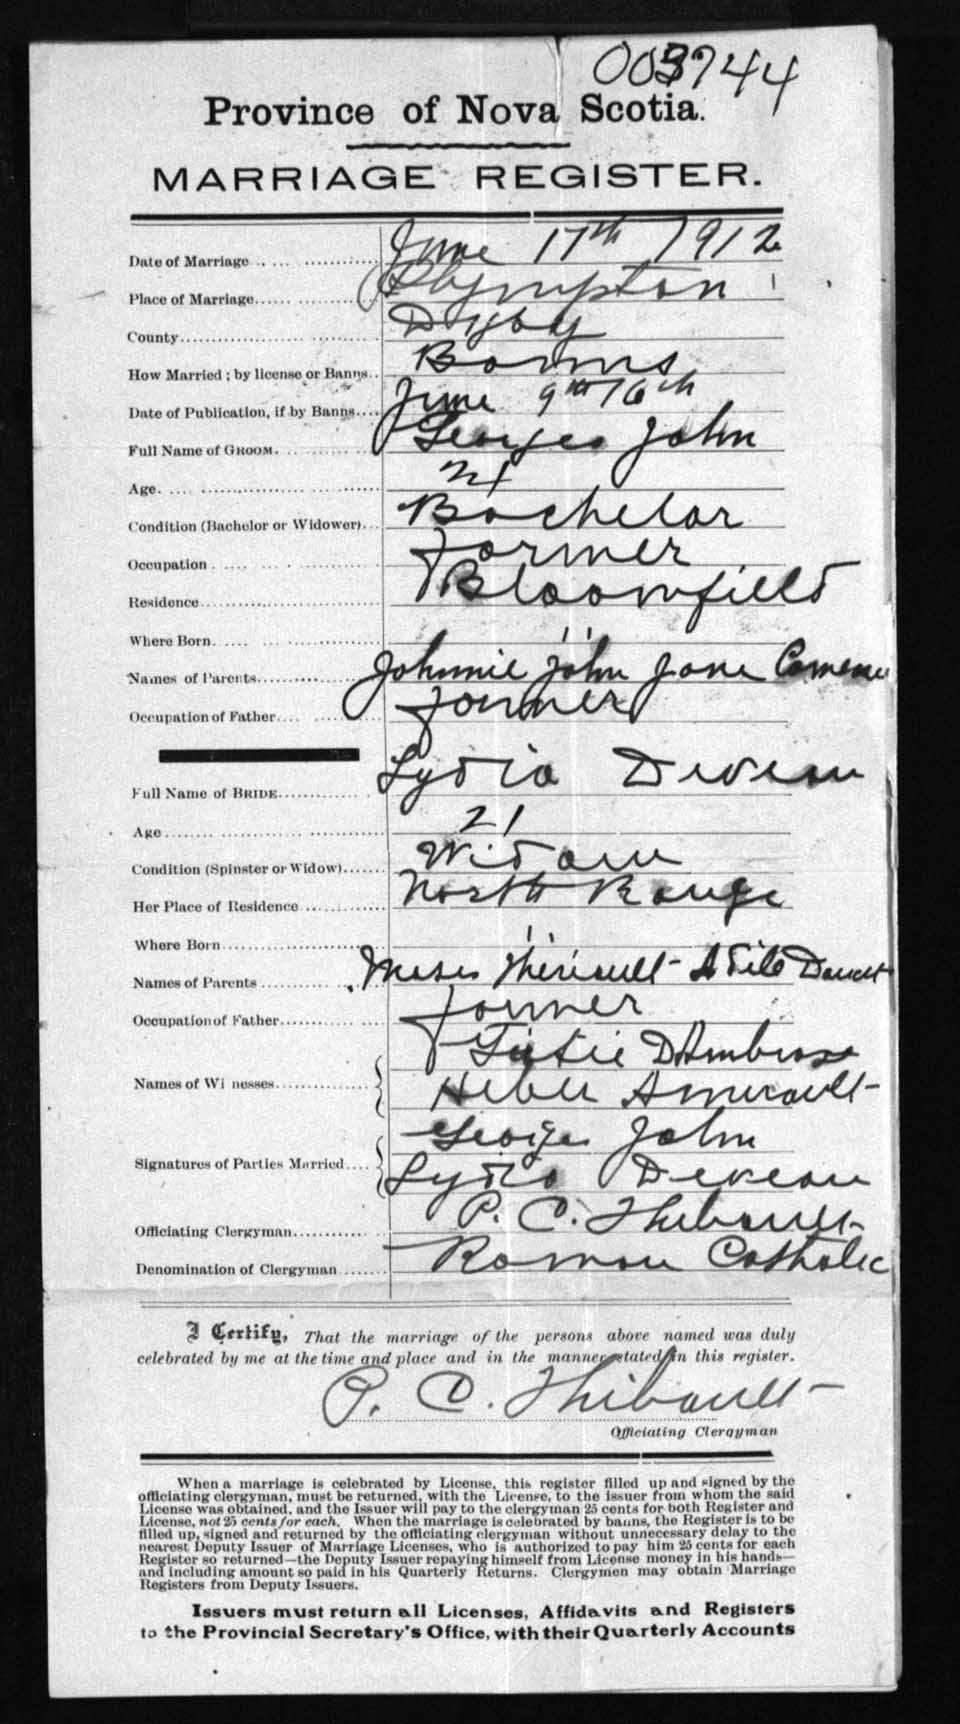 003744
Province of Nova Scotia.
MARRIAGE REGISTER.
Date of Marriage June 17th 1912
Place of Marriage Plympton
County Digby
How Married; by license or Banns Banns
Date of Publication, if by Banns June 9th 16th
Full Name of GROOM. Georges John
Age 21
Condition (Bachelor or Widower) Bachelor
Occupation Farmer
Residence Bloomfield
Where Born ''
Names of Parents Johnnie John Jane
Occupation of Father Farmer
Full Name of BRIDE Lydia Deveau
Age 21
Condition (Spinster or Widow) Widow
Her Place of Residence North Range
Where Born ''
Names of Parents Moses Theriault
Occupation of Father Farmer
D'Ambrose
Names of Wi nesses Amirault
George John
Signatures of Parties Married Lydia Deveau
Officiating Clergyman P. C. Thibault
Denomination of Clergyman Roman Catholic
I Certify, That the marriage of the persons above named was duly
celebrated by me at the time and place and in the manner stated in this register.
P. C. Thibault
Officiating Clergyman
When a marriage is celebrated by License, this register filled up and signed by the
officiating clergyman, must be returned, with the License, to the issuer from whom the said
License was obtained, and the Issuer will pay to the clergyman 25 cents for both Register and
License, not 25 cents for each. When the marriage is celebrated by banns, the Register is to be
filled up, signed and returned by the officiating clergyman without unnecessary delay to the
nearest Deputy Issuer of Marriage Licenses, who is authorized to pay him 25 cents for each
Register so returned—the Deputy Issuer repaying himself from License money in his hands—
and including amount so paid in his Quarterly Returns. Clergymen may obtain Marriage
Registers from Deputy Issuers.
Issuers must return all Licenses, Affidavits and Registers
to the Provincial Secretary's Office, with their Quarterly Accounts